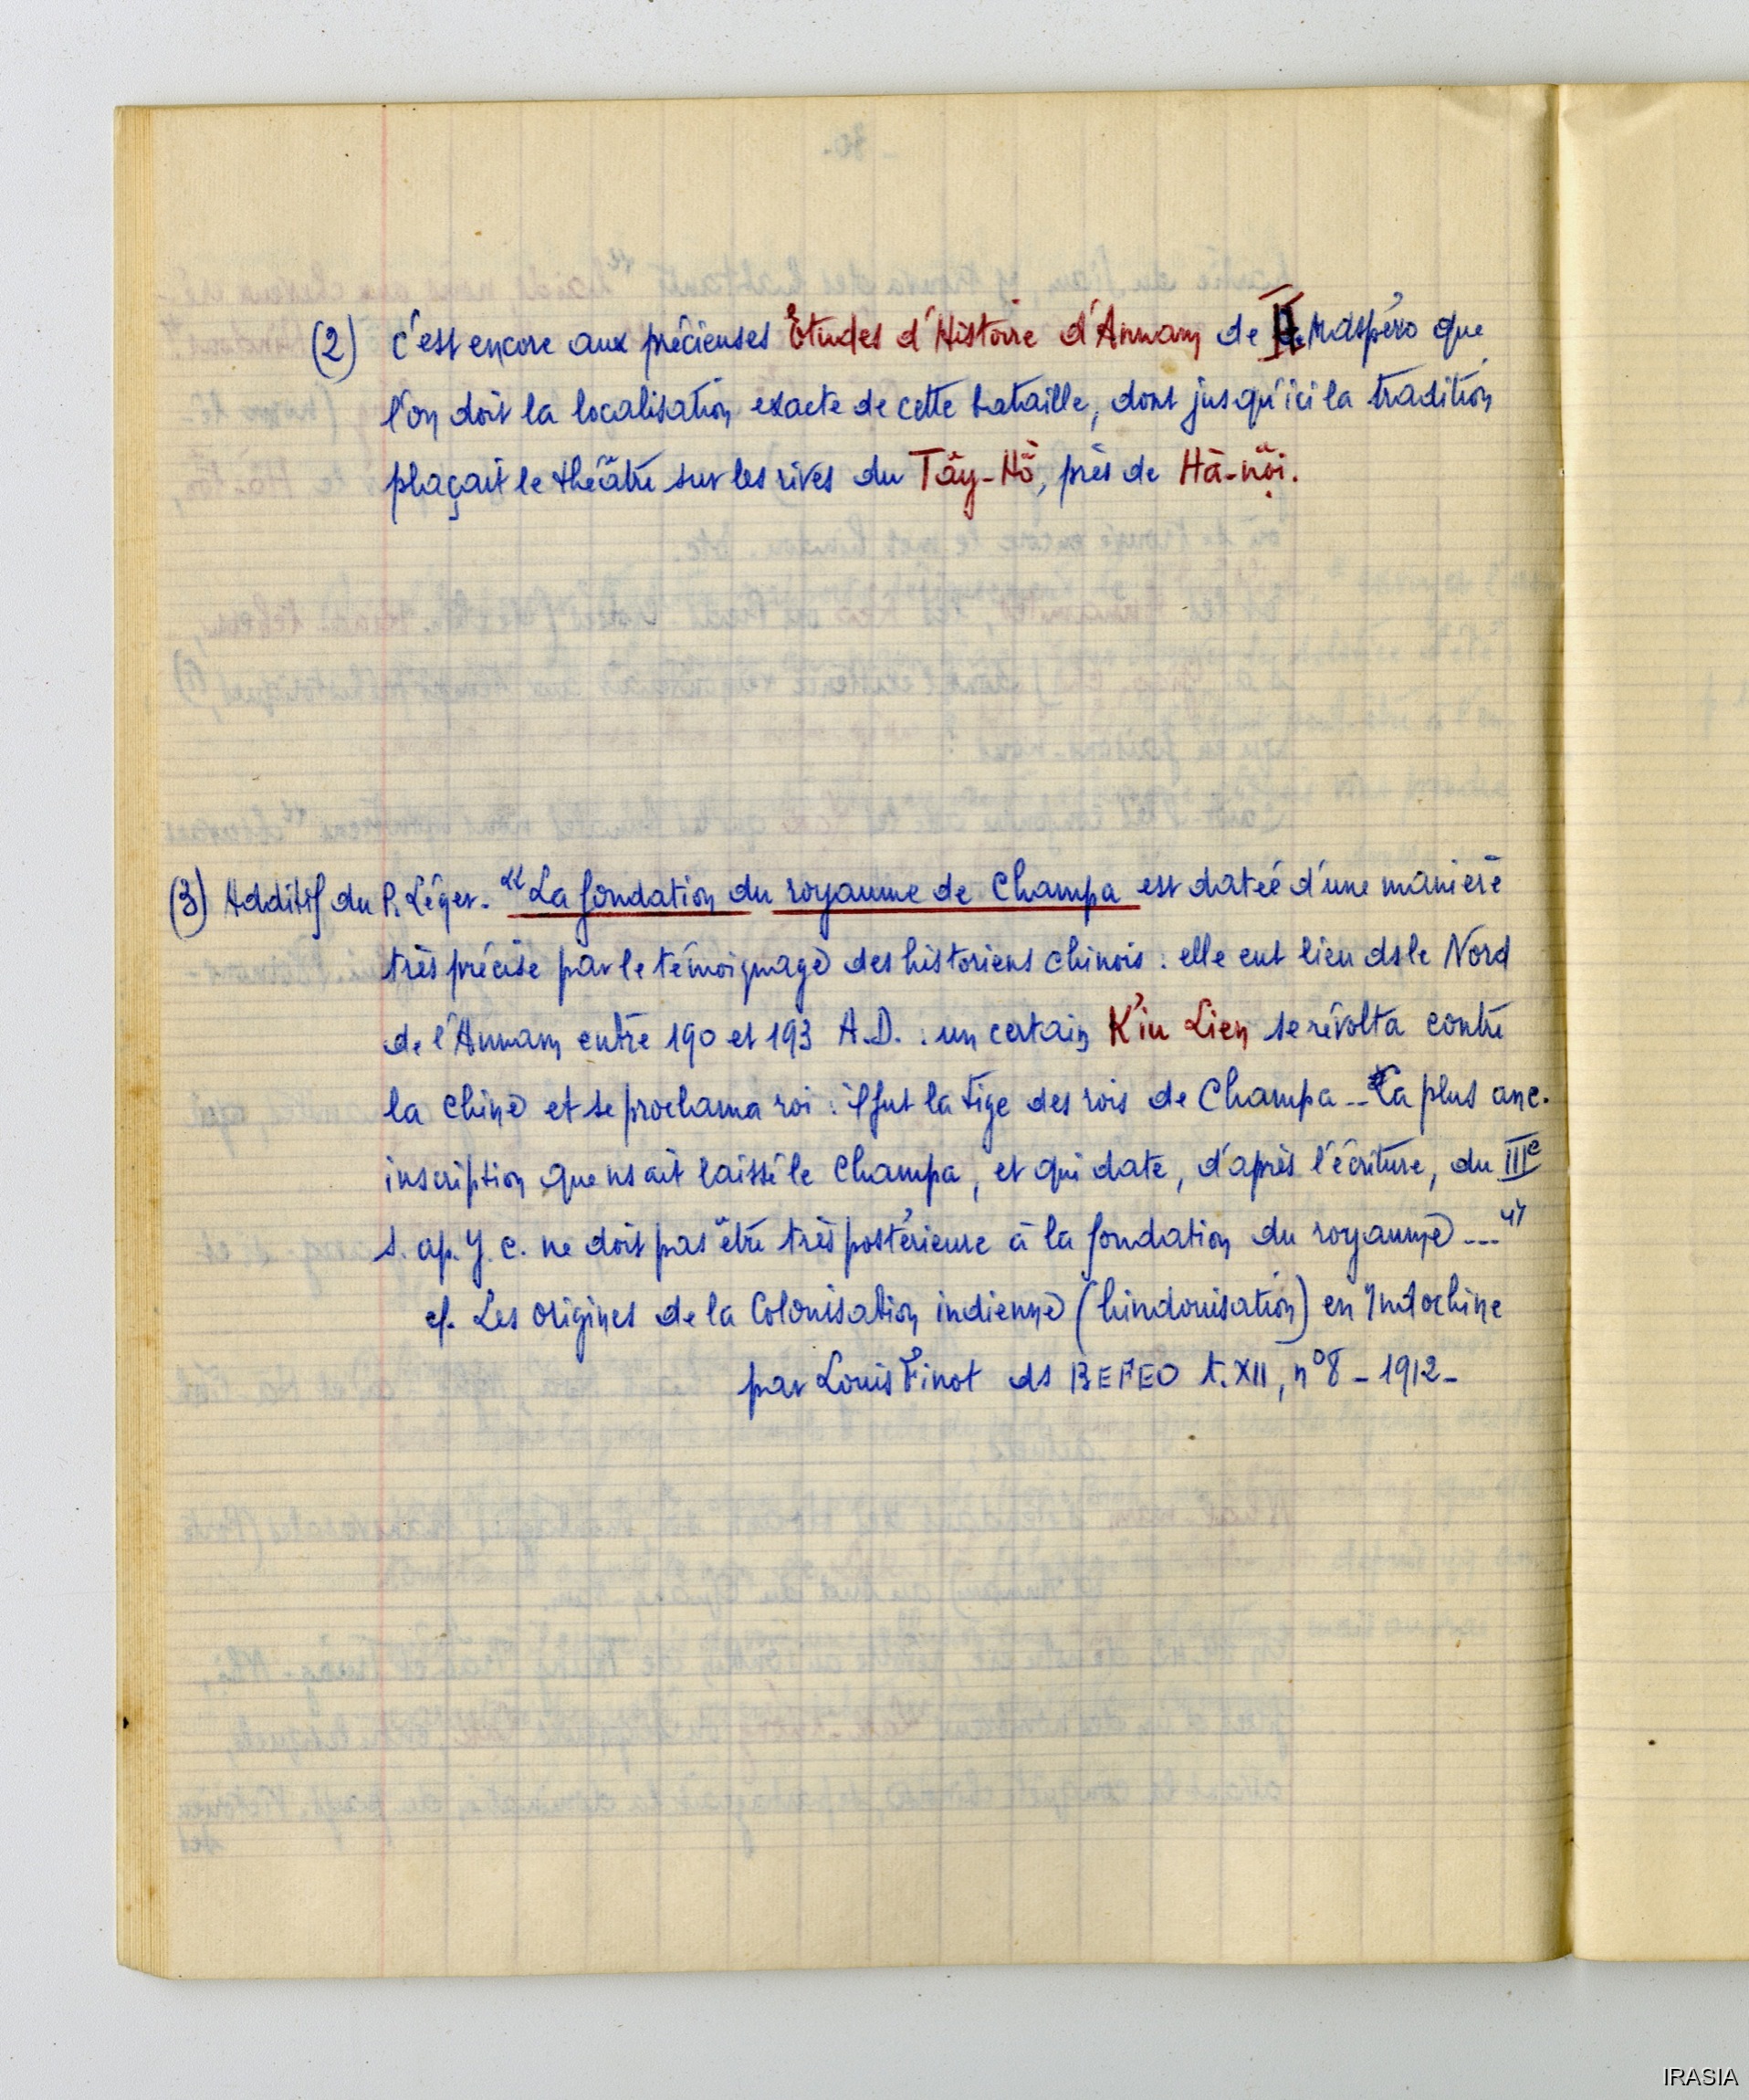 (2) c'est encore aux précieuses Études d'Histoire d'Annam de H. Maspéro que
l'on doit la localisation exacte de cette bataille, dont jusqu'ici la tradition
plaçait le théâtre sur les rives du Tây-Hồ, près de Hà-nội.
(3) Additif du P. Léger. "La fondation du royaume de Champa est datée d'une manière
très précise par le témoignage des historiens chinois : elle eut lieu ds le Nord
de l'Annam entre 190 et 193 A.D. : un certain K'iu Lien se révolta contre
la Chine et se proclama roi : il fut la tige des rois de Champa -- La plus anc.
inscription que ns ait laissé le Champa, et qui date, d'après l'écriture, du IIIe
s. ap. J. C. ne doit pas être très postérieure à la fondation du royaume ---"
cf. Les origines de la Colonisation indienne (hindouisation) en Indochine
par Louis Finot ds BEFEO t. XII, n° 8 - 1912 -
IRASIA